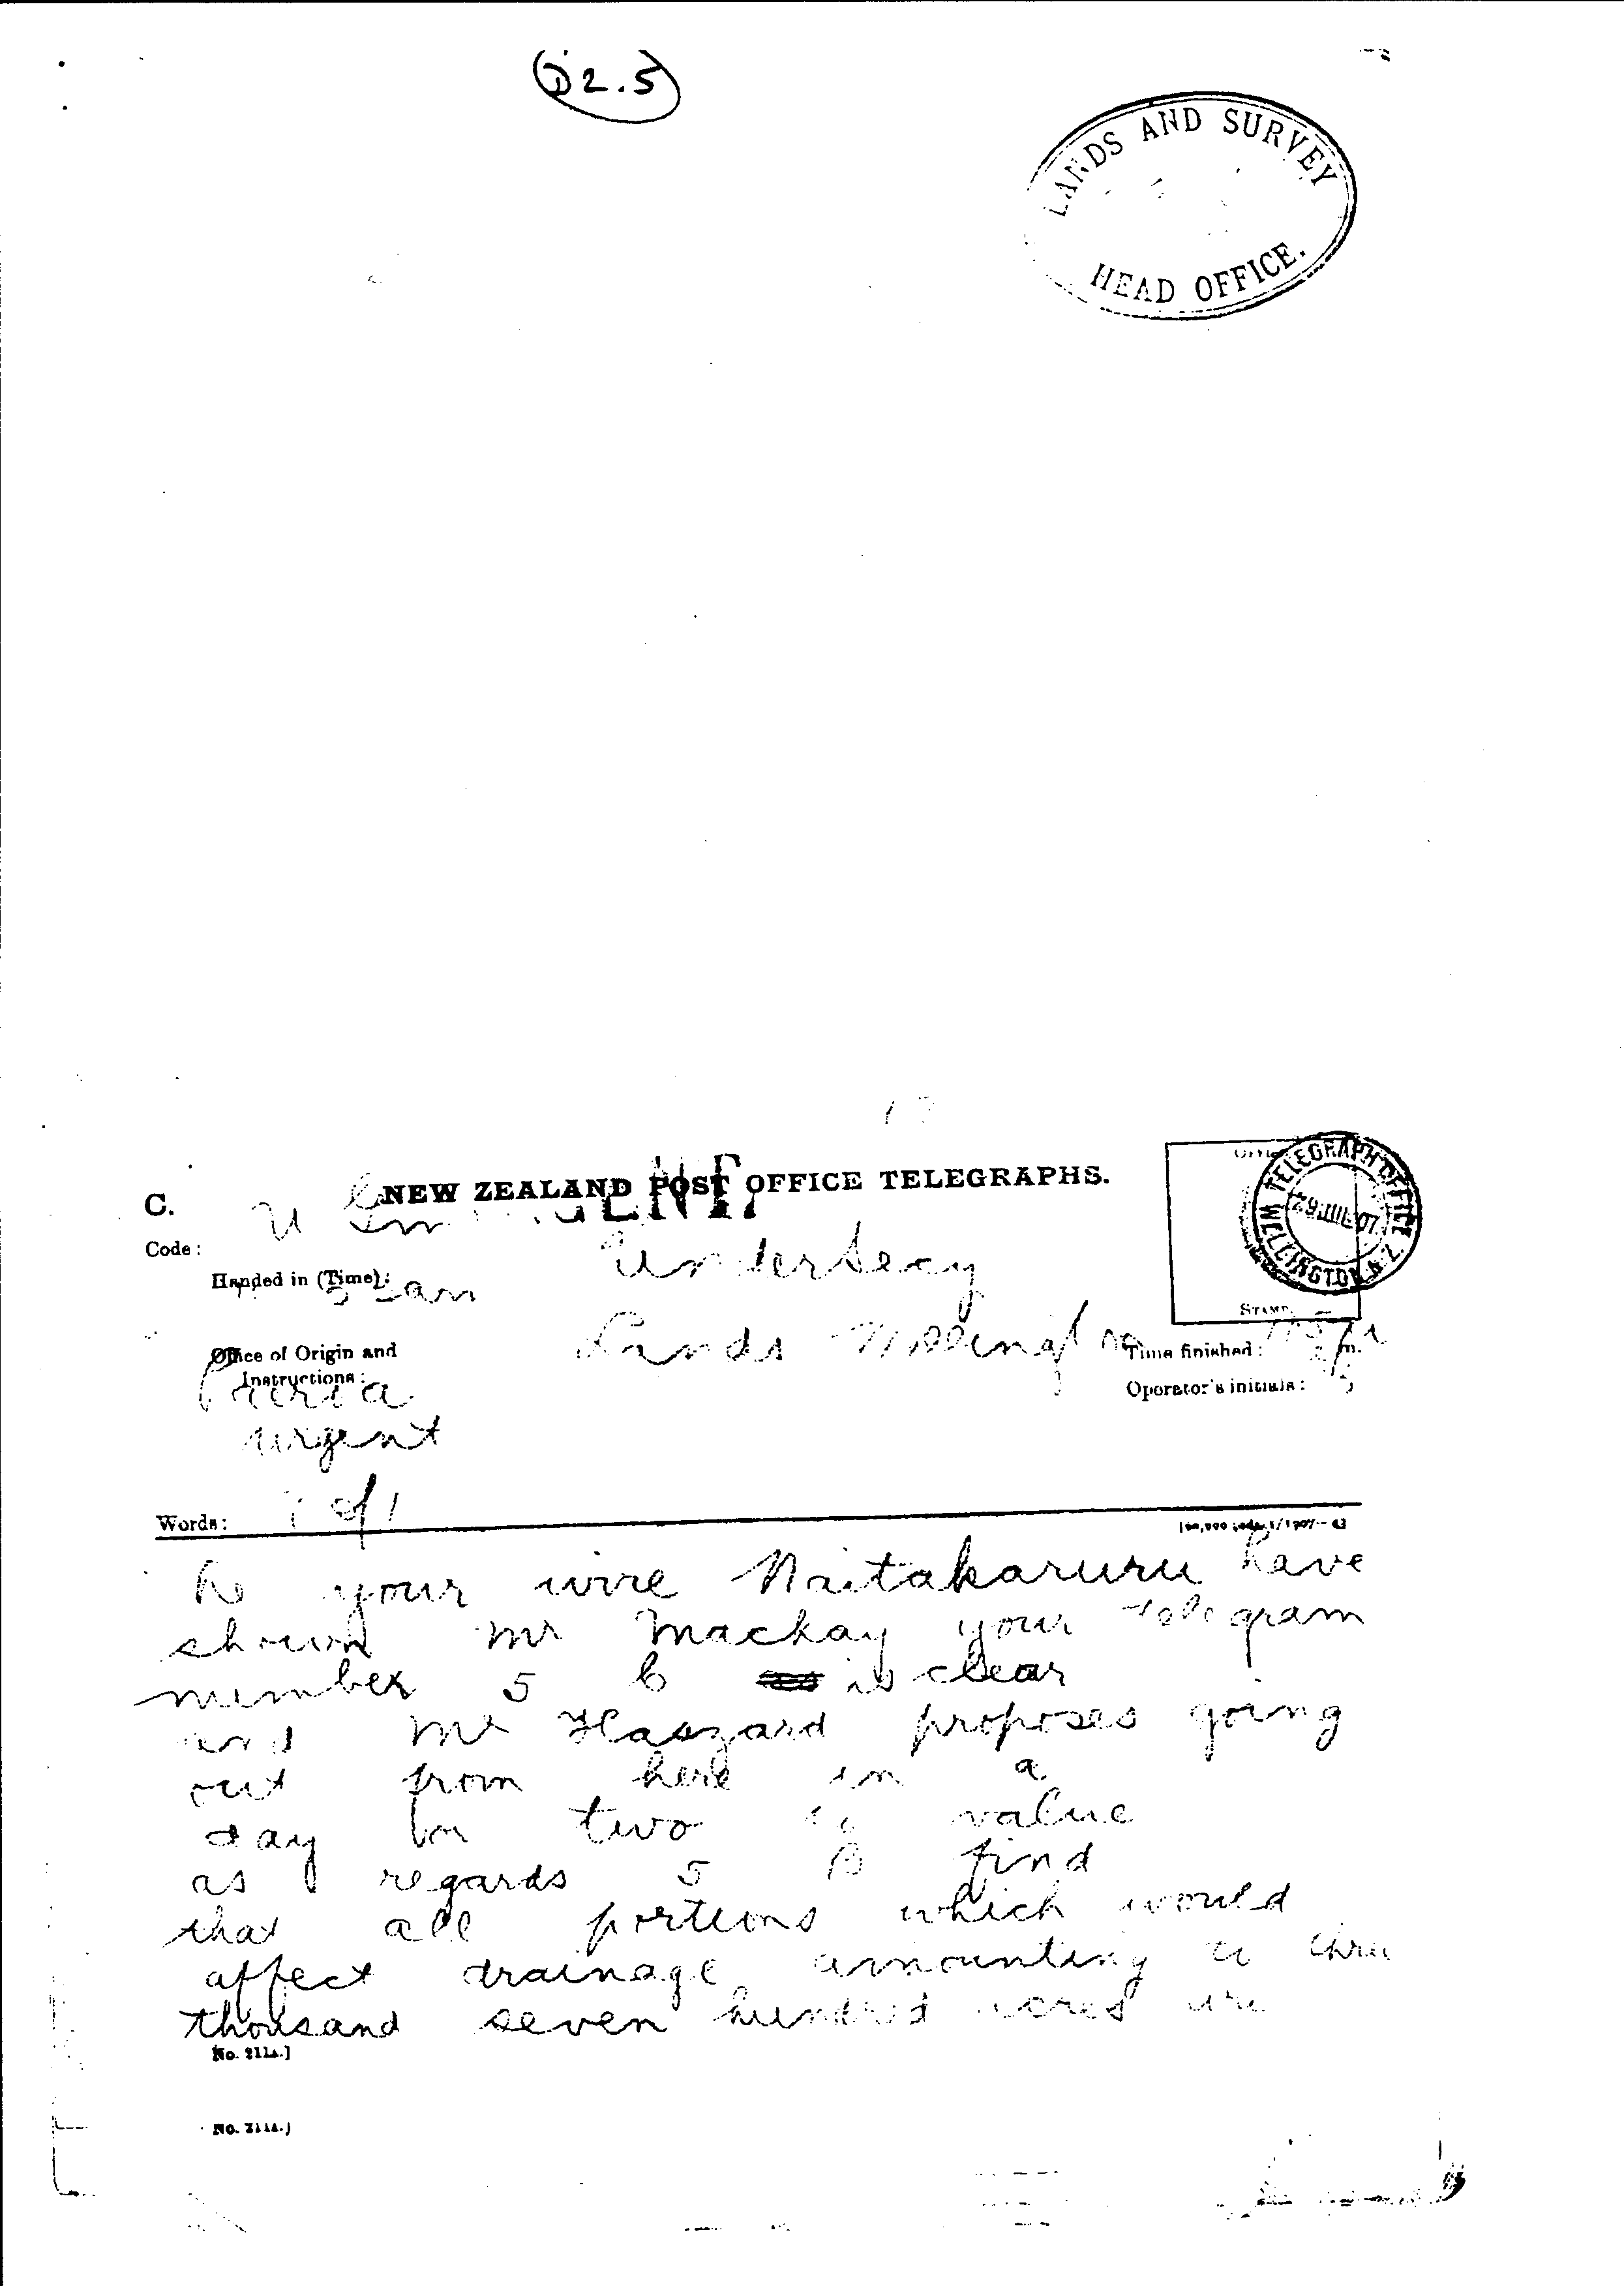 D2.5
LANDS AND SURVEY
HEAD OFFICE.
C.
NEW ZEALAND POST OFFICE TELEGRAPHS.
TELEGRAPH OFFICE
29 JUL 07
WELLINGTON N.Z.
Code:
Handed in (Time):
Undersecy
STAMP
Lands Wellington
Office of Origin and
Instructions:
Paeroa
urgent
Time finished:
Operator's initials:
Words:
Re your wire Waitakaruru have
shown Mr Mackay your telegram
number 5 6 is clear
and Mr Haszard proposes going
out from here in a
day or two to value
as regards 5 B find
that all portions which would
affect drainage amounting to three
thousand seven hundred acres are
No. 211A.]
No. 211A.]